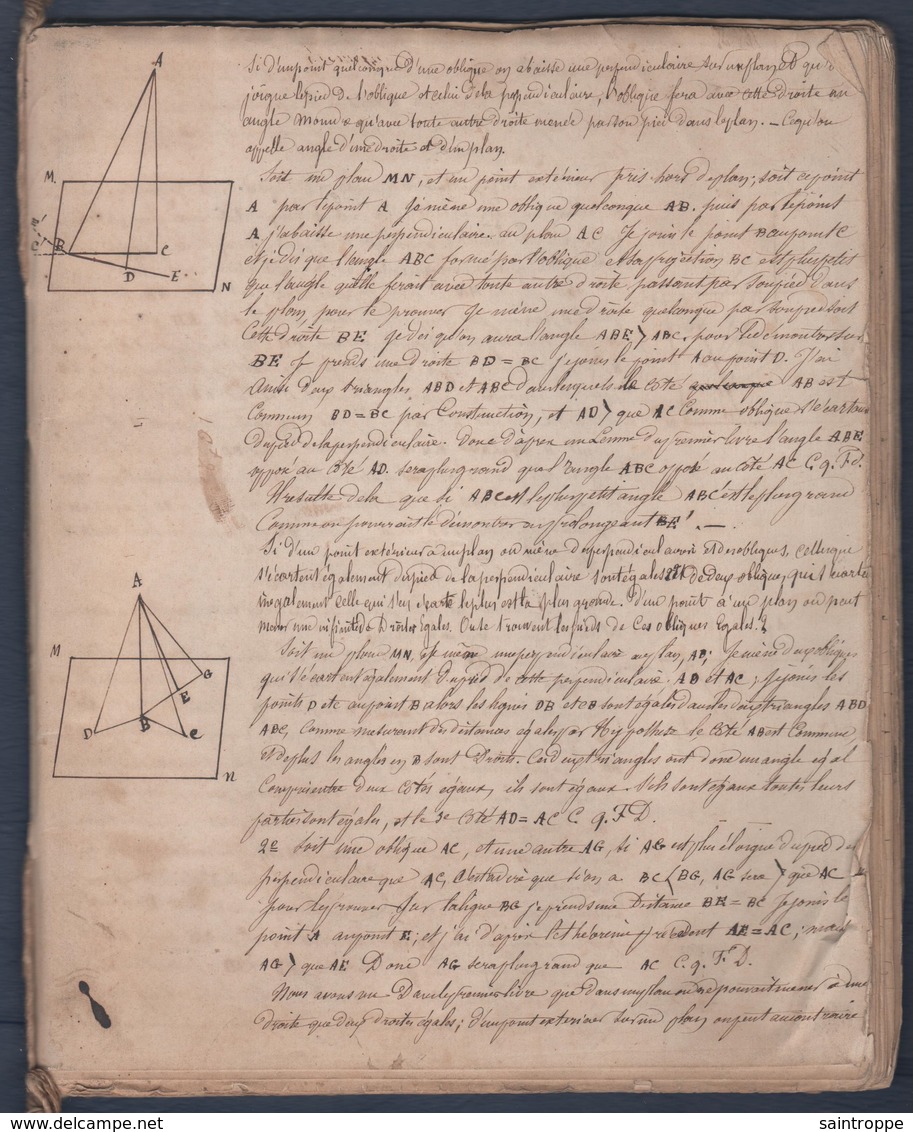 Si d'un point quelconque d'une oblique on abaisse une perpendiculaire sur un plan et qu'on
joigne le pied de l'oblique et celui de la perpendiculaire, l'oblique fera avec cette droite un
angle moindre qu'avec toute autre droite menée par son pied dans le plan. — Ce qu'on
appelle angle d'une droite et d'un plan.
Soit un plan MN, et un point extérieur pris hors de plan; soit ce point
A par le point A je mène une oblique quelconque AB. puis par le point
A j'abaisse une perpendiculaire au plan AC Je joins le point B au point C
et je dis que l'angle ABC formé par l'oblique et sa projection BC est plus petit
que l'angle qu'elle ferait avec toute autre droite passant par son pied dans
le plan, pour le prouver je mène une droite quelconque par son pied soit
Cette droite BE je dis qu'on aura l'angle ABE > ABC. pour le démontrer sur
BE je prends une droite BD = BC je joins le point A au point D. J'ai
ainsi deux triangles ABD et ABC dans lesquels le côté quelconque AB est
commun BD = BC par construction, et AD > que AC comme oblique s'écartant
du pied de la perpendiculaire. Donc d'après un Lemme du premier livre l'angle ABE
opposé au côté AD sera plus grand que l'angle ABC opposé au côté AC C.q.F.d.
Il résulte de là que si ABC est le plus petit angle ABC' est le plus grand
Comme on pourrait le démontrer en prolongeant BE'. —
Si d'un point extérieur à un plan on mène des perpendiculaires et des obliques, celles qui
s'écartent également du pied de la perpendiculaire sont égales et de deux obliques qui s'écartent
inégalement celle qui s'en écarte le plus est la plus grande. D'un point à un plan on peut
mener une infinité de Droites Egales. Où se trouvent les pieds de ces obliques Egales.?
Soit un plan MN, je mène une perpendiculaire au plan, AB; Je mène deux obliques
qui s'écartent également du pied de cette perpendiculaire AD et AC; je joins les
points D et C au point B alors les lignes DB et CB sont égales dans les deux triangles ABD
ABC, comme mesurant des distances égales par Hypothèse le côté AB est Commun
et de plus les angles en B sont Droits. Ces deux triangles ont donc un angle égal
compris entre deux côtés égaux, ils sont égaux. S'ils sont égaux toutes leurs
parties sont égales, et le 3e côté AD = AC C.q.F.D.
2º Soit une oblique AC, et une autre AG, si AG est plus éloigné du pied de la
perpendiculaire que AC, c'est à dire que si on a BC < BG, AG sera > que AC
pour le prouver sur la ligne BG je prends une Distance BE = BC je joins le
point A au point E; et j'ai d'après le théorème précédent AE = AC; mais
AG > que AE Donc AG sera plus grand que AC C.q.F.D.
Nous avons vu Dans le premier livre que dans un plan on ne pouvait mener à une
droite que deux droites égales; d'un point extérieur sur un plan on peut au contraire
A
M
B
C
D
E
N
A
M
G
E
D
B
C
N
www.delcampe.net
saintroppe